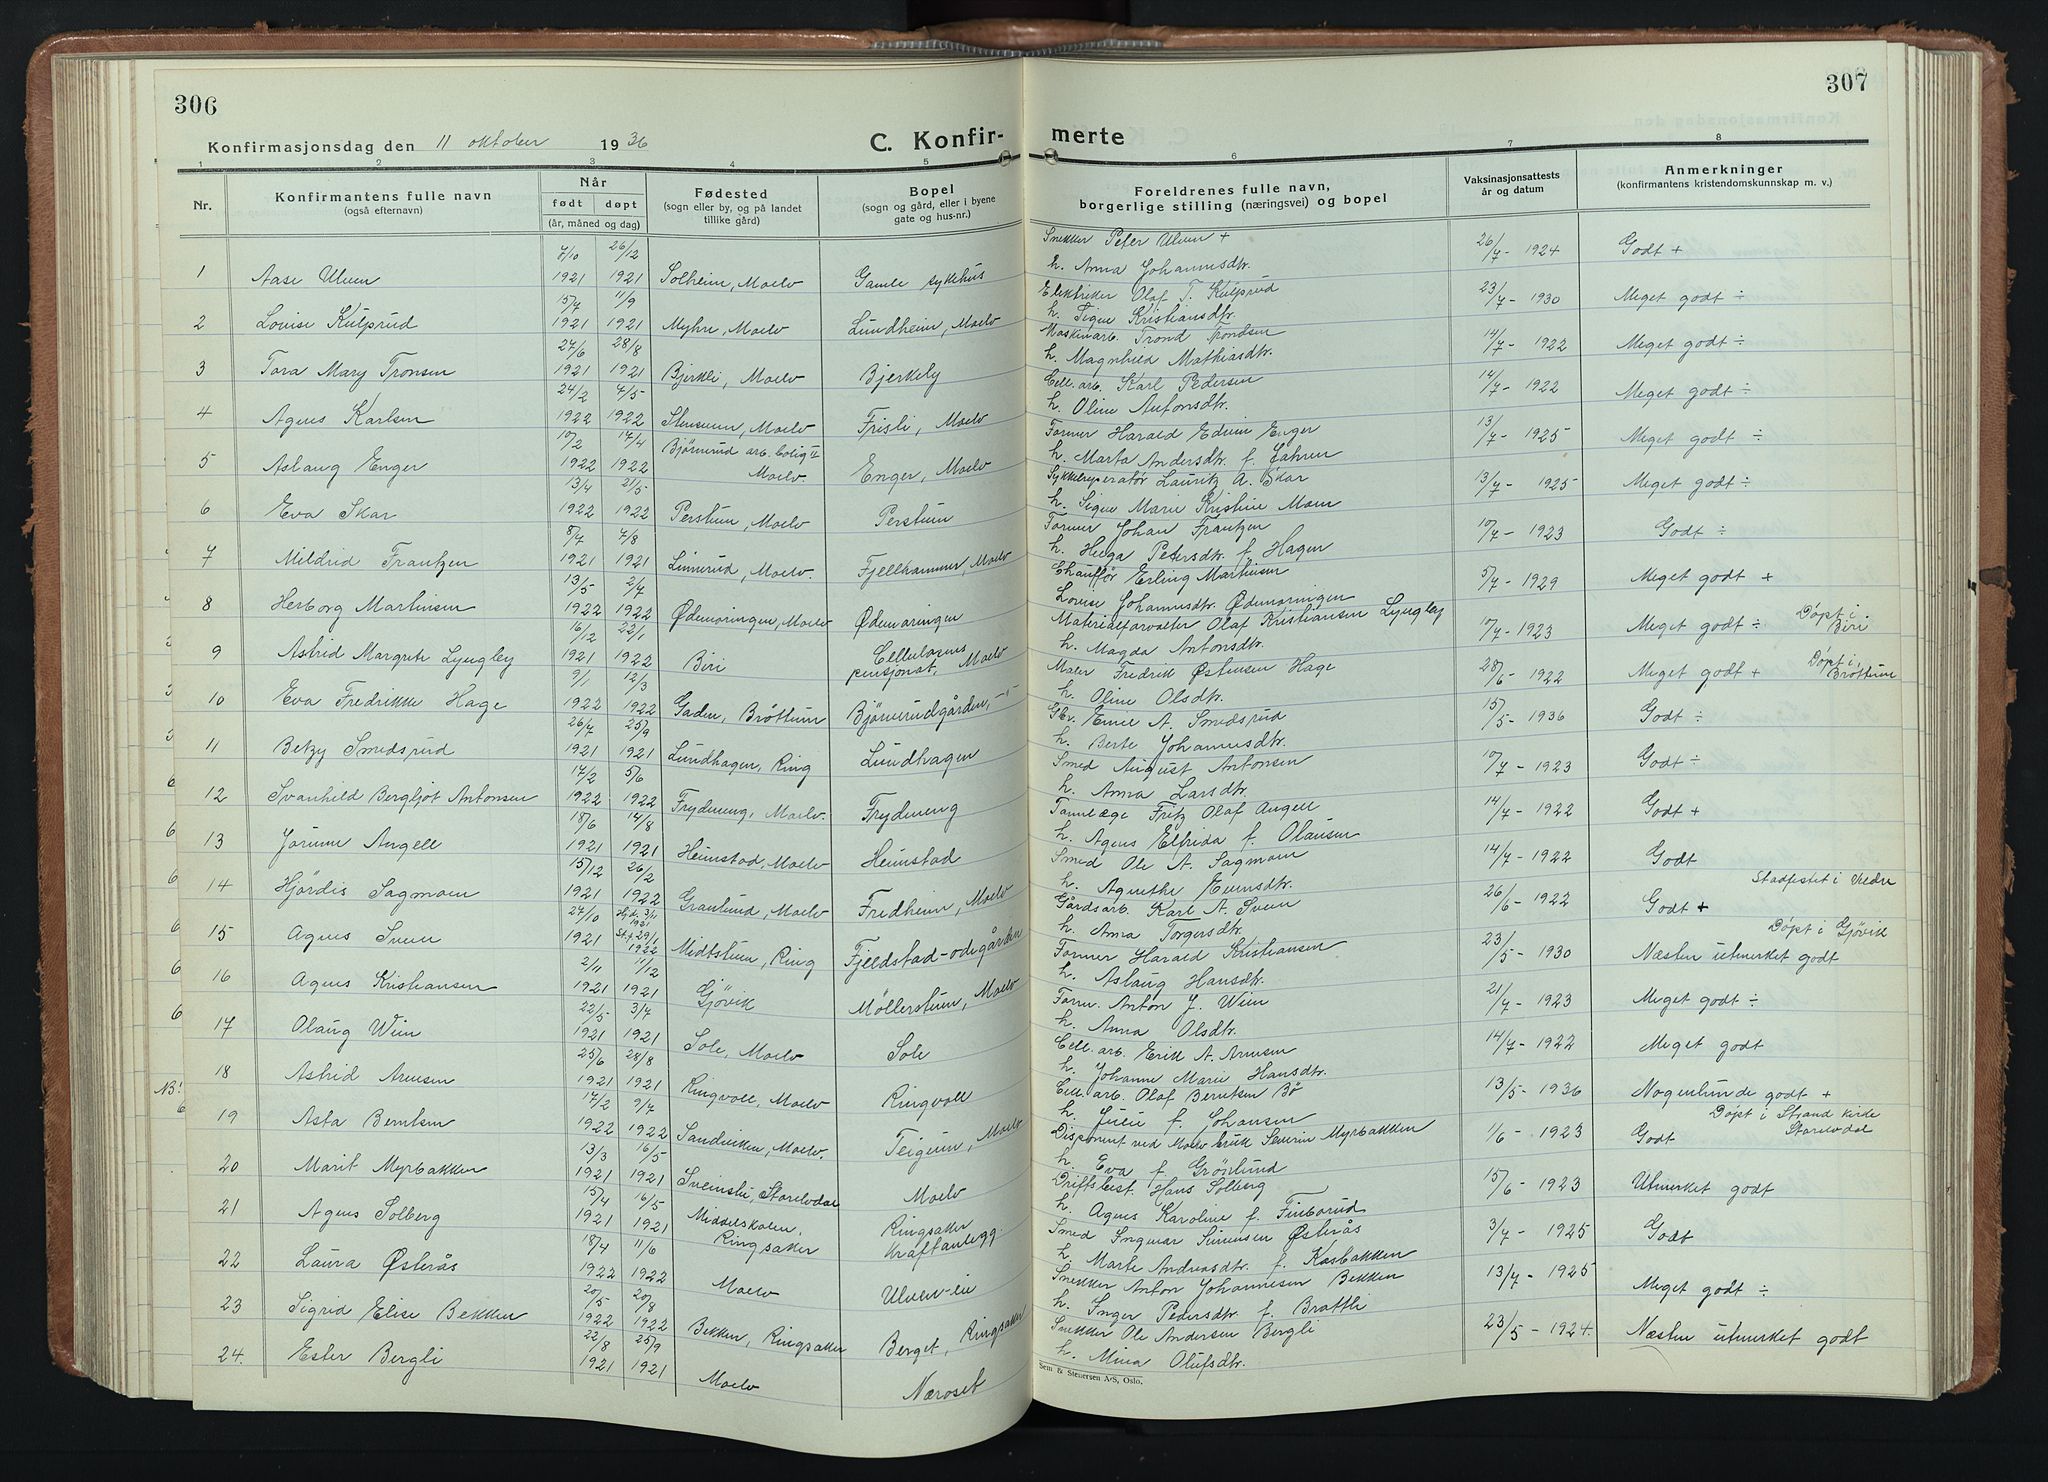 306
Konfirmasjonsdag den 11 oktober 1936
C. Konfir-
1 2 3 4 5
Nr.
Konfirmantens fulle navn
(også efternavn)
Når
født døpt
(år, måned og dag)
Fødested
(sogn eller by, og på landet
tillike gård)
Bopel
(sogn og gård, eller i byene
gate og hus-nr.)
7/10 26/12
1 Aase Ulven 1921 1921 Solheim, Moelv Gamle sykehus
15/7 11/9
2 Lovise Kulprud 1921 1921 Myhre, Moelv Lundheim, Moelv
27/6 28/8
3 Tora Mary Tronsen 1921 1921 Bjerkli, Moelv Bjerkely
24/2 7/5
4 Agnes Karlsen 1922 1922 Stensrum, Moelv Frisli, Moelv
10/2 17/4 Bjørnerud arb. bolig II
5 Aslaug Enger 1922 1922 Moelv Enger, Moelv
13/4 21/5
6 Eva Skar 1922 1922 Perstuen, Moelv Perstuen
8/7 7/8
7 Mildrid Frantzen 1921 1921 Linnerud, Moelv. Fjellhammer, Moelv
13/5 2/7
8 Herborg Martinsen 1922 1922 Ødemoringen, Moelv Ødemoringen
16/12 22/1
9 Astrid Margrete Lyngby 1921 1922 Biri Cellulosens
pensjonat, Moelv
9/1 12/3
10 Eva Fredrikke Hage 1922 1922 Gaden, Brøttum Bjørnerudgården, - " -
26/7 25/9
11 Betzy Smedsrud 1921 1921 Lundhagen, Ring Lundhagen
17/2 5/6
12 Svanhild Bergljot Antonsen 1922 1922 Frydeneng, Moelv. Frydeneng
18/6 14/8
13 Jorunn Angell 1921 1921 Heimstad, Moelv Heimstad
15/12 26/2
14 Hjördis Sagmoen 1921 1922 Granlund, Moelv Fredheim, Moelv
27/10
15 Agnes Sveen 1921 St.f. 29/1 1922 Midtstuen, Ring Fjeldstad-ødegården
2/11 11/12
16 Agnes Kristiansen 1921 1921 Gjövik Möllerstuen, Moelv
22/5 3/7
17 Olaug Wien 1921 1921 Sole, Moelv Sole
25/6 28/8
18 Astrid Arnesen 1921 1921 Ringvoll, Moelv Ringvoll
17/2 9/7
19 Asta Berntsen 1922 1922 Sandviken, Moelv. Teigum, Moelv
13/3 16/5
20 Marit Myrbakken 1921 1921 Sveinsli, Storelvdal Moelv
15/4 16/5
21 Agnes Solberg 1921 1921 Middelskolen, Ringsaker
Ringsaker kraftanlegg.
18/4 11/6
22 Laura Østerås 1922 1922 Moelv Ulven-eie
20/5 20/8
23 Sigrid Elise Bekken 1922 1922 Bekken, Ringsaker Berget, Ringsaker
22/8 25/9
24. Ester Bergli 1921 1921 Moelv Næroset
307
merte
6 7 8
Foreldrenes fulle navn,
borgerlige stilling (næringsvei) og bopel
Vaksinasjonsattests
år og datum
Anmerkninger
(konfirmantens kristendomskunnskap m. v.)
Snekker Peter Ulven + 26/7 - 1924 Godt +
h. Anna Johannesdtr.
Elektriker Olaf T. Kulprud 23/7 - 1930 Meget godt ÷
h. Signe Kristiansdtr.
Maskinarb. Trond Trondsen 14/7 - 1922 Meget godt ÷
h. Magnhild Mathiasdtr.
Cell. arb. Karl Pedersen 14/7 - 1922 Meget godt ÷
h. Oline Antonsdtr.
Former Harald Edvin Enger 13/7 - 1925 Meget godt ÷
h. Marta Andersdtr. f. Jahren
Sykkelreparatør Lauritz A. Skar 13/7 - 1925 Meget godt ÷
h. Signe Marie Kristine Moen
Former Johan Frantzen 10/7 - 1923 Godt ÷
h. Helga Petersdtr. f. Hagen
Chauffør Erling Martinsen 5/7 - 1929 Meget godt +
Lovise Johannesdtr. Ødemoringen
Materialforvalter Olaf Kristiansen Lyngby 10/7 - 1923 Meget godt ÷ Döpt i Biri.
h. Magda Antonsdtr.
Maler Fredrik Østensen Hage 28/6 - 1922 Meget godt + Döpt i Brøttum
h. Oline Olsdtr.
Gbr. Emil A. Smedsrud 15/5 - 1936 Godt ÷
h. Berte Johannesdtr.
Smed August Antonsen 10/7 - 1923 Godt ÷
h. Anna Larsdtr.
Tannlæge Fritz Olaf Angell 14/7 - 1922 Godt +
h. Agnes Elfrida f. Olausen
Smed Ole A. Sagmoen 14/7 - 1922 Godt
h. Agnethe Evensdtr.
Gårdsarb. Karl A. Sveen 26/6 - 1922 Godt + Stadfestet i Veldre
h. Anna Torgersdtr.
Former Harald Kristiansen 23/5 - 1930 Næsten utmerket godt Döpt i Gjøvik
h. Aslaug Hansdtr.
Form. Anton J. Wien 21/7 - 1923 Meget godt ÷
h. Anna Olsdtr.
Cell. arb. Erik A. Arnesen 14/7 - 1922 Meget godt
h. Johanne Marie Hansdtr.
Cell. arb. Olaf Berntsen Bø 13/5 - 1936 Nogenlunde godt +
h. Julie f. Johansen
Disponent ved Moelv bruk Severin Myrbakken 1/6 - 1923 Godt Döpt i Strand kirke
Storelvdal
h. Eva f. Grönlund
Driftsbest. Hans Solberg 15/6 - 1923 Utmerket godt
h. Agnes Karoline f. Finborud
Smed Ingvar Simensen Østerås 3/7 - 1925 Godt
h. Marte Andreasdtr. f. Kasbakken
Snekker Anton Johannesen Bekken 13/7 - 1925 Meget godt ÷
h. Inger Pedersdtr. f. Brattli
Snekker Ole Andersen Bergli 23/5 - 1924. Næsten utmerket godt
h. Mina Olufsdtr.
Sem & Stenersen A/S, Oslo.